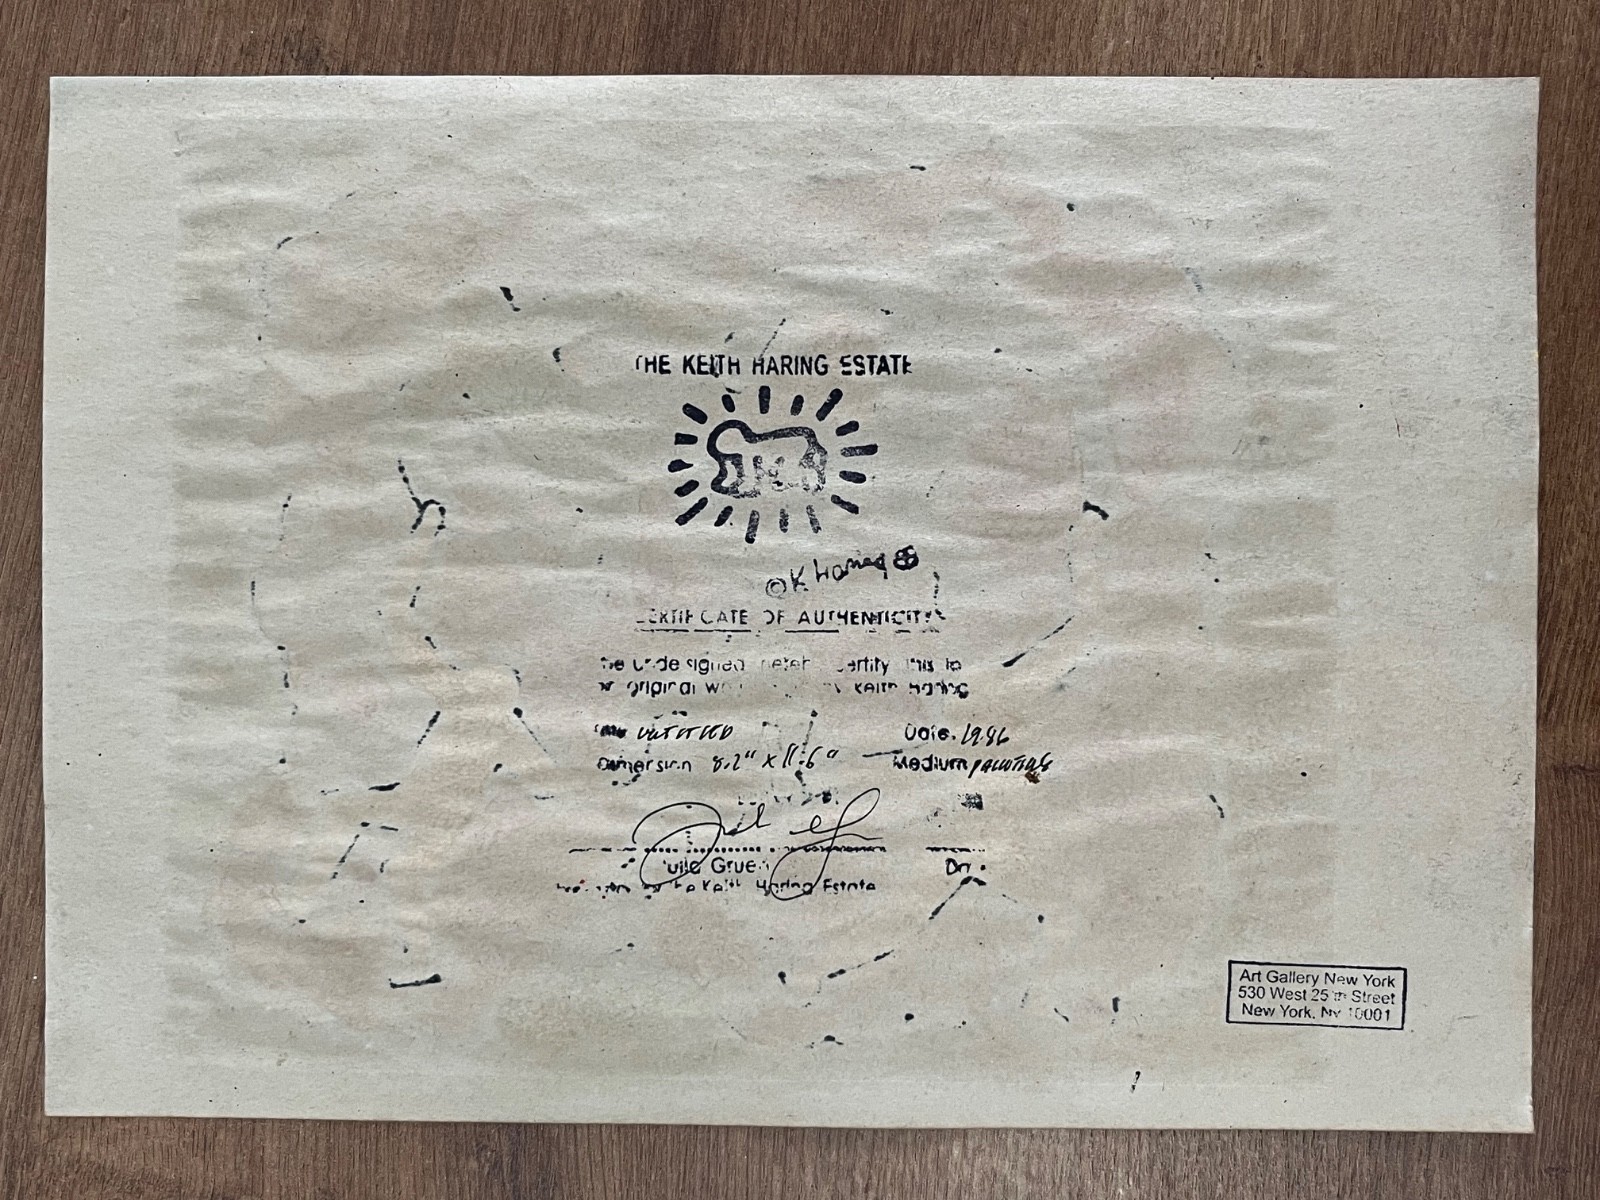 THE KEITH HARING ESTATE
© K. Haring ⊕
CERTIFICATE OF AUTHENTICITY
The undesigned hereby certify this is
original Keith Haring
UNTITLED Date. 1986
Dimension 8.2" x 11.6" Medium
Julia Gruen On
the Keith Haring Estate
Art Gallery New York
530 West 25th Street
New York, NY 10001